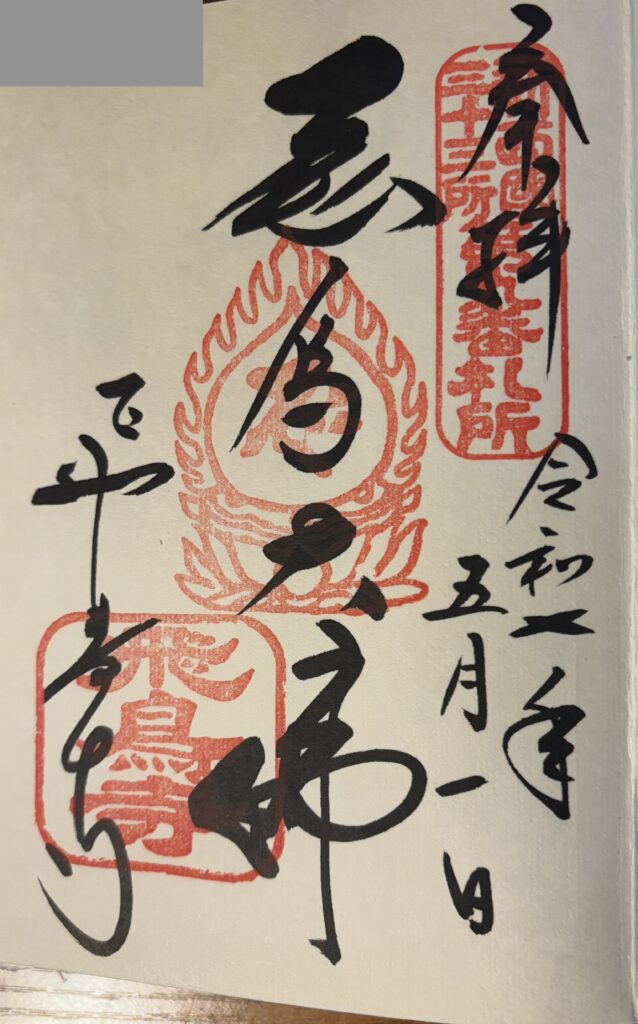 奉拝
新西国
三十三所
第九番札所
令和七年
五月一日
飛鳥大佛
飛鳥寺